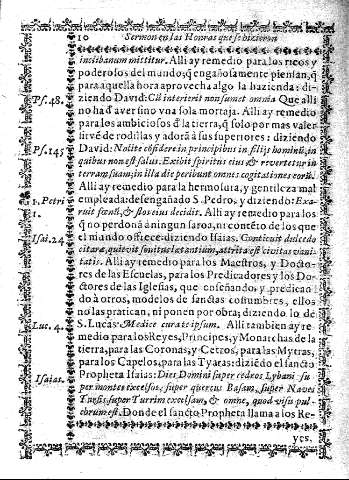 10 Sermon en las Honras que se hizieron
inclibanum mittitur. Alli ay remedio para los ricos y
poderosos del mundo; q̃ engañosamente piensan, q̃
para aquella hora aprovecha algo la hazienda: di-
Ps. 48. ziendo David: Cũ interierit non sumet omnia Que alli
no ha d̃ aver sino vna sola mortaja. Alli ay remedio
para los ambiciosos d̃ la tierra, q̃ solo por mas valer
sirvẽ de rodillas y adorã à sus superiores: diziendo
Ps. 145 David: Nolite cõfidere in principibus in filijs hominũ, in
quibus non est salus. Exibit spiritus eius & revertetur in
terram suam, in illa die peribunt omnes cogitationes eorũ.
Alli ay remedio para la hermosura, y gentileza mal
1. Petri empleada: desengañado S. Pedro, y diziendo: Exa-
1. ruit fœnũ, & flos eius decidit. Alli ay remedio para los
q̃ no perdonã ningun sarao, ni contẽto de los que
Isai. 24 el mando offece: diziendo Isaias. Conticuit dulcedo
citaræ, quievit sonitus lætantium, attrita est civitas vani-
tatis. Alli ay remedio para los Maestros, y Docto-
res de las Escuelas, para los Predicadores y los Do-
ctores de las Iglesias, que enseñando, y predican
do à otros, modelos de sanctas costumbres, ellos
no las pratican, ni ponen por obra; diziendo lo de
Luc. 4. S. Lucas: Medice cura te ipsum. Alli tambien ay re-
medio para los Reyes, Principes, y Monarchas de la
tierra, para las Coronas, y Cetros, para las Mytras,
para los Capelos, para las Tyaras: diziẽdo el sancto
Isaias. Propheta Isaias: Dies Domini super cedros Lybani su-
per montes excelsos, super quercus Basam, super Naves
Tursis, super Turrim excelsam, & omne, quod visu pul-
chrum est. Donde el sancto Propheta llama a los Re-
yes,